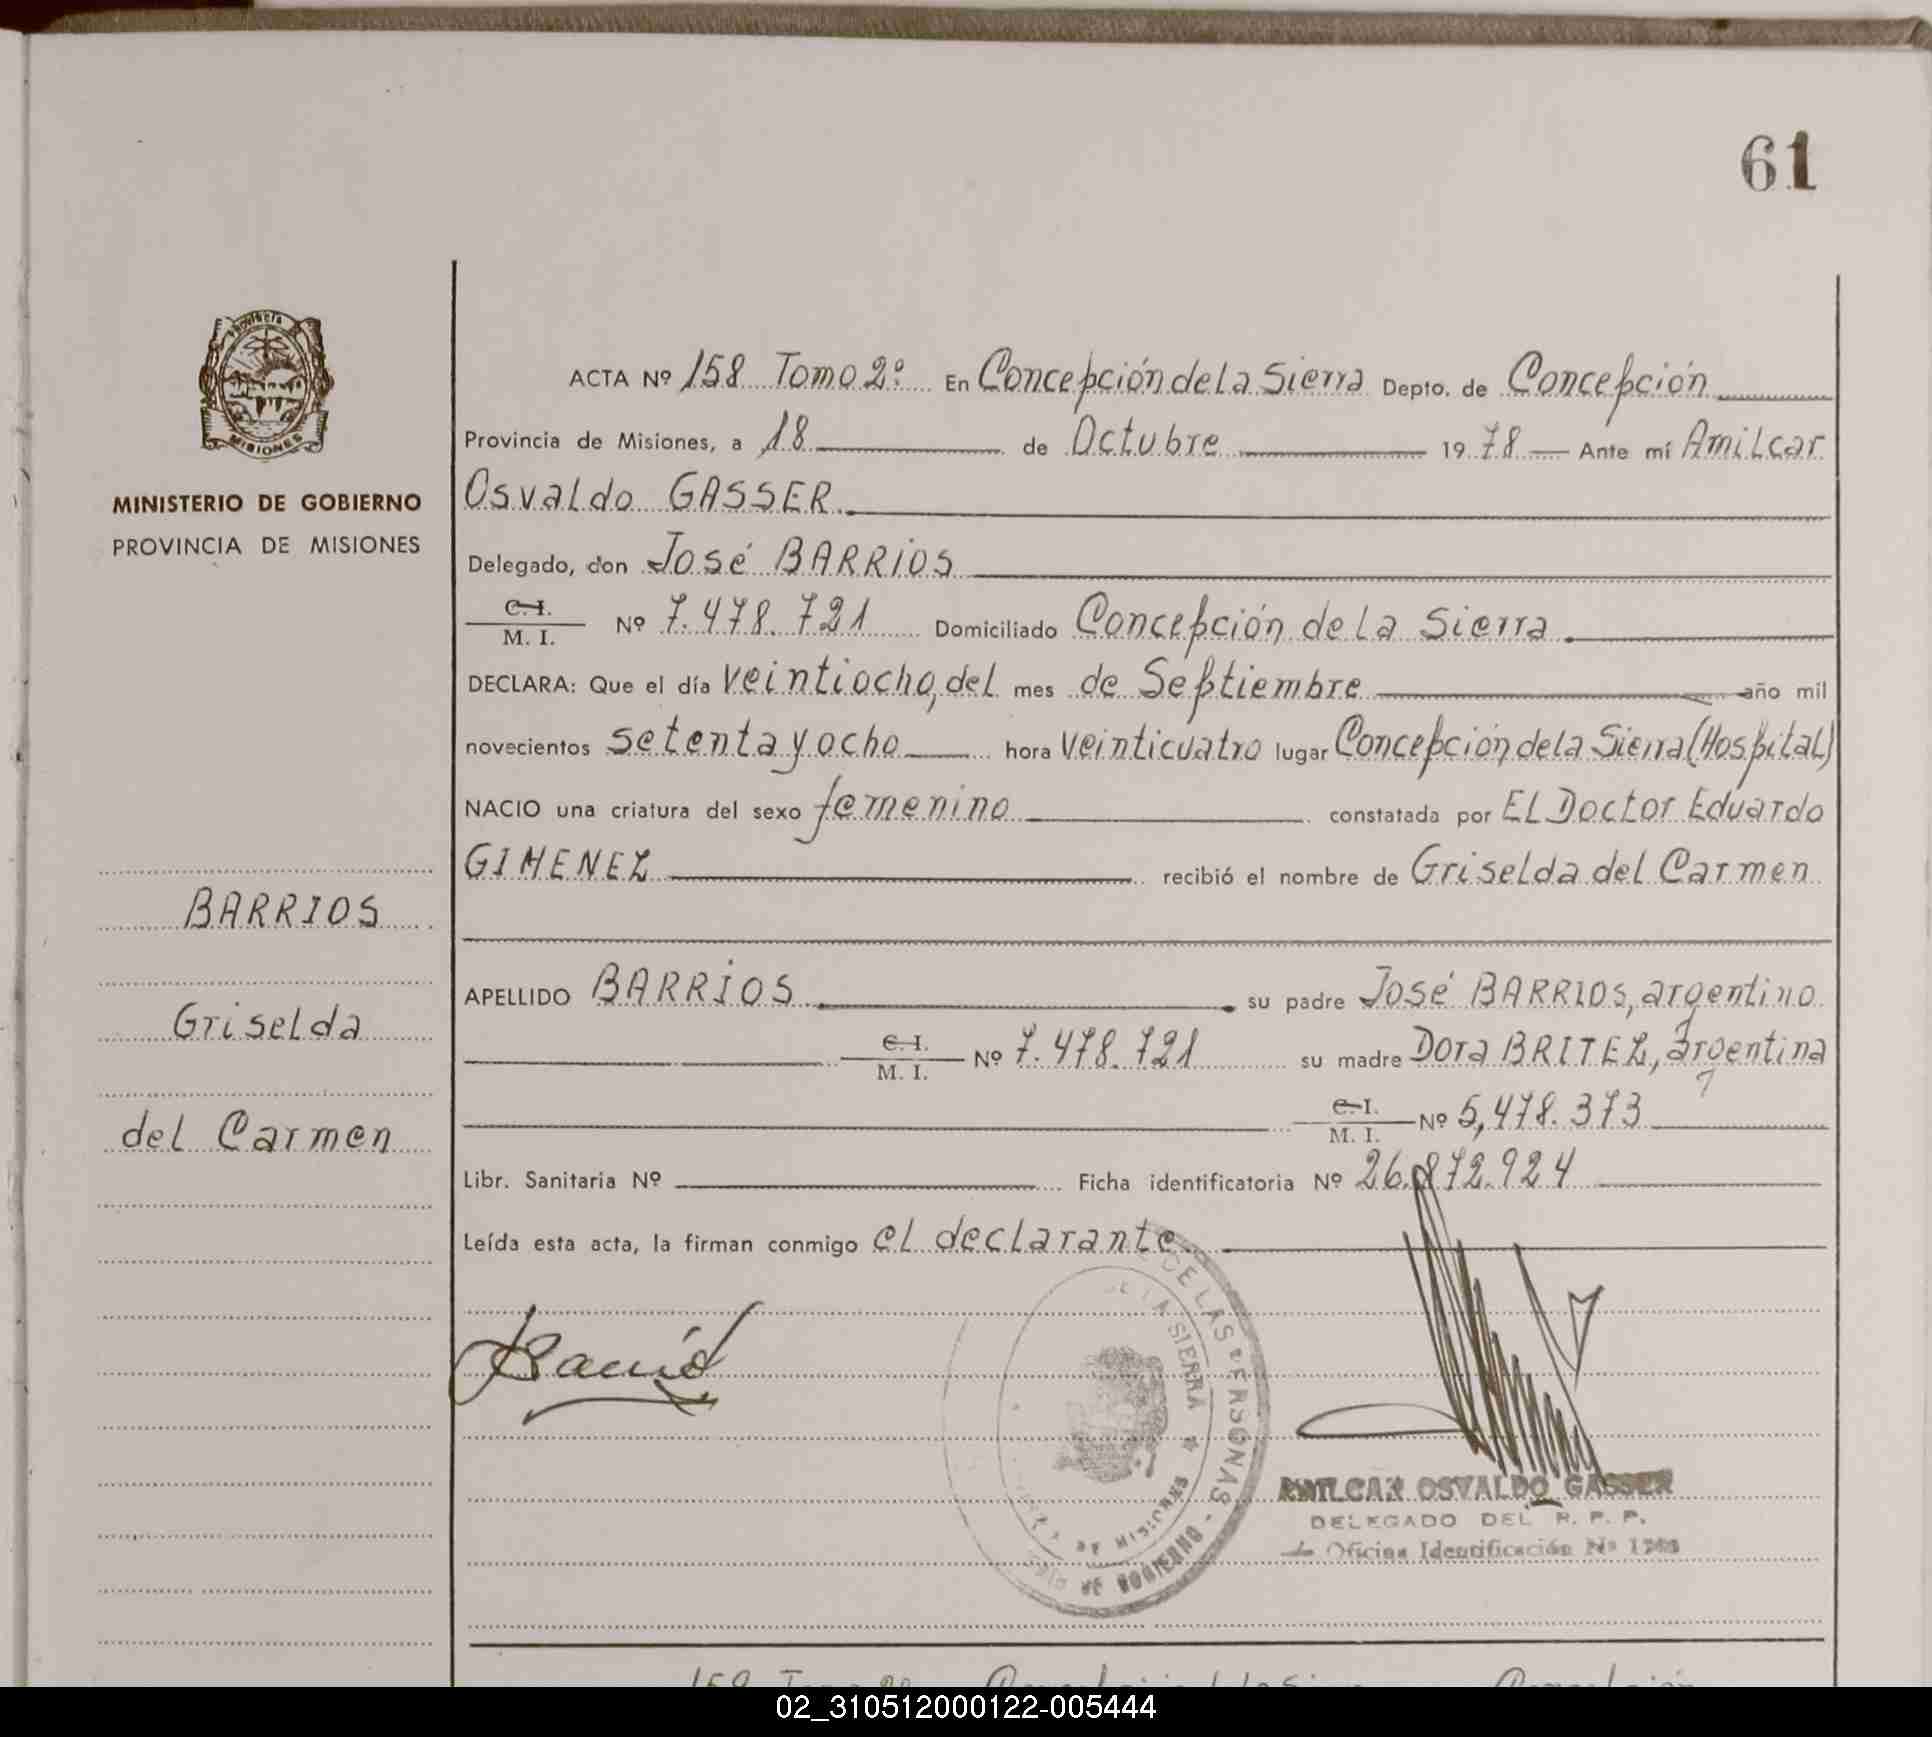 61
PROVINCIA
MISIONES
MINISTERIO DE GOBIERNO
PROVINCIA DE MISIONES
BARRIOS
Griselda
del Carmen
ACTA Nº 158 Tomo 2º En Concepción de La Sierra Depto. de Concepción
Provincia de Misiones, a 18 de Octubre 1978 Ante mí Amilcar
Osvaldo GASSER.
Delegado, don José BARRIOS
C. I.
M. I. Nº 7.478.721 Domiciliado Concepción de La Sierra.
DECLARA: Que el día veintiocho, del mes de Septiembre año mil
novecientos setenta y ocho hora veinticuatro lugar Concepción de la Sierra (Hospital)
NACIO una criatura del sexo femenino constatada por El Doctor Eduardo
GIMENEZ recibió el nombre de Griselda del Carmen
APELLIDO BARRIOS su padre José BARRIOS, argentino
C. I.
M. I. Nº 7.478.721 su madre Dora BRITEZ, argentina
C. I.
M. I. Nº 5,478.373
Libr. Sanitaria Nº Ficha identificatoria Nº 26.872.924
Leída esta acta, la firman conmigo el declarante.
DE LAS PERSONAS -
DE LA SIERRA ★
AMILCAR OSVALDO GASSER
DELEGADO DEL R. P. P.
Oficina Identificación Nº
159 Tomo 2º Concepción de la Sierra Concepción
02_310512000122-005444